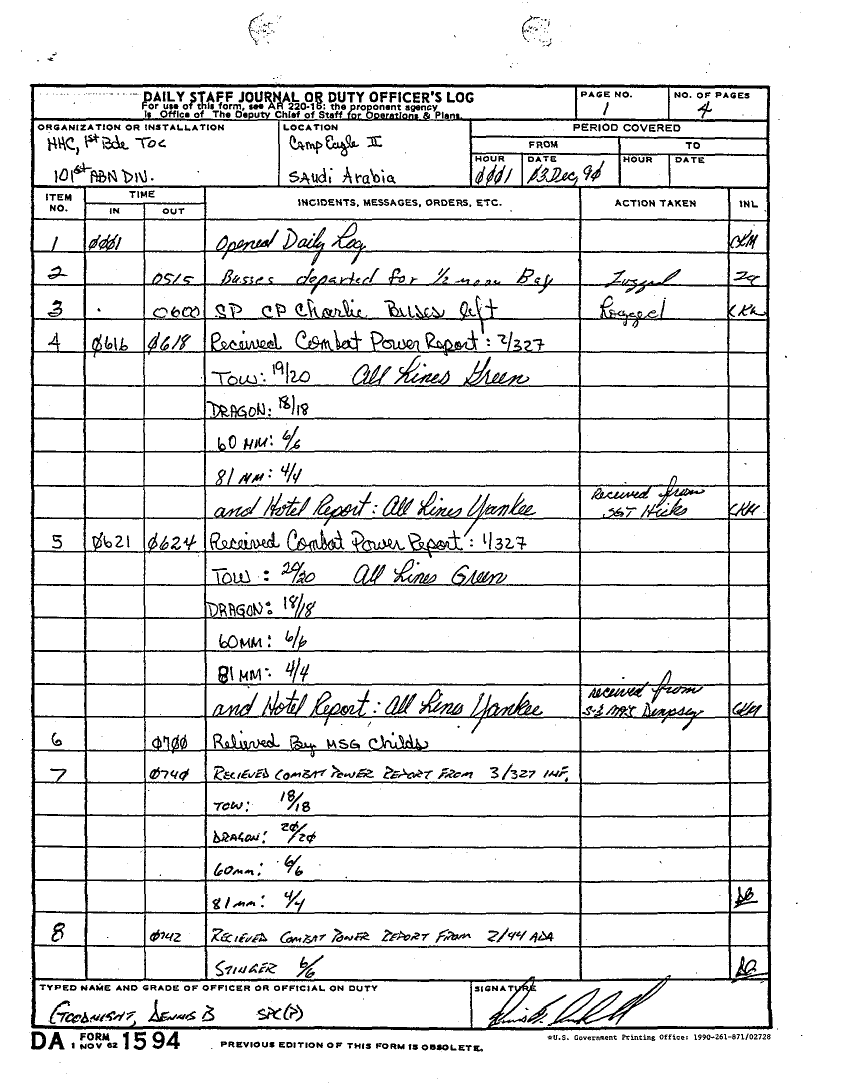 DAILY STAFF JOURNAL OR DUTY OFFICER'S LOG
For use of this form, see AR 220-15; the proponent agency
is Office of The Deputy Chief of Staff for Operations & Plans.
PAGE NO.
1
NO. OF PAGES
4
ORGANIZATION OR INSTALLATION
HHC, 1st Bde TOC
101st ABN DIV.
LOCATION
Camp Eagle II
Saudi Arabia
PERIOD COVERED
FROM
TO
HOUR
0001
DATE
03Dec,90
HOUR
DATE
ITEM NO.
TIME
IN
OUT
INCIDENTS, MESSAGES, ORDERS, ETC.
ACTION TAKEN
INL
1 0001 Opened Daily Log CKM
2 0515 Busses departed for 1/2 moon Bay Logged
3 0600 SP CP Charlie Buses left Logged
4 0616 0618 Received Combat Power Report: 2/327
TOW: 19/20 All Lines Green
DRAGON: 18/18
60 MM: 6/6
81 MM: 4/4
and Hotel Report: All Lines Yankee Received from SGT Hicks CKM
5 0621 0624 Received Combat Power Report: 1/327
TOW: 20/20 All Lines Green
DRAGON: 18/18
60MM: 6/6
81 MM: 4/4
and Hotel Report: All Lines Yankee received from Dempsey CKM
6 0700 Relieved By MSG Childs
7 0740 RECIEVED COMBAT POWER REPORT FROM 3/327 INF.
TOW: 18/18
DRAGON: 20/20
60mm: 6/6
81mm: 4/4
8 0742 RECIEVED COMBAT POWER REPORT FROM 2/44 ADA
STINGER 6/6
TYPED NAME AND GRADE OF OFFICER OR OFFICIAL ON DUTY
GOODNIGHT, DENNIS B SPC(P)
SIGNATURE
DA FORM 1 NOV 62 1594
PREVIOUS EDITION OF THIS FORM IS OBSOLETE.
*U.S. Government Printing Office: 1990-261-871/02728